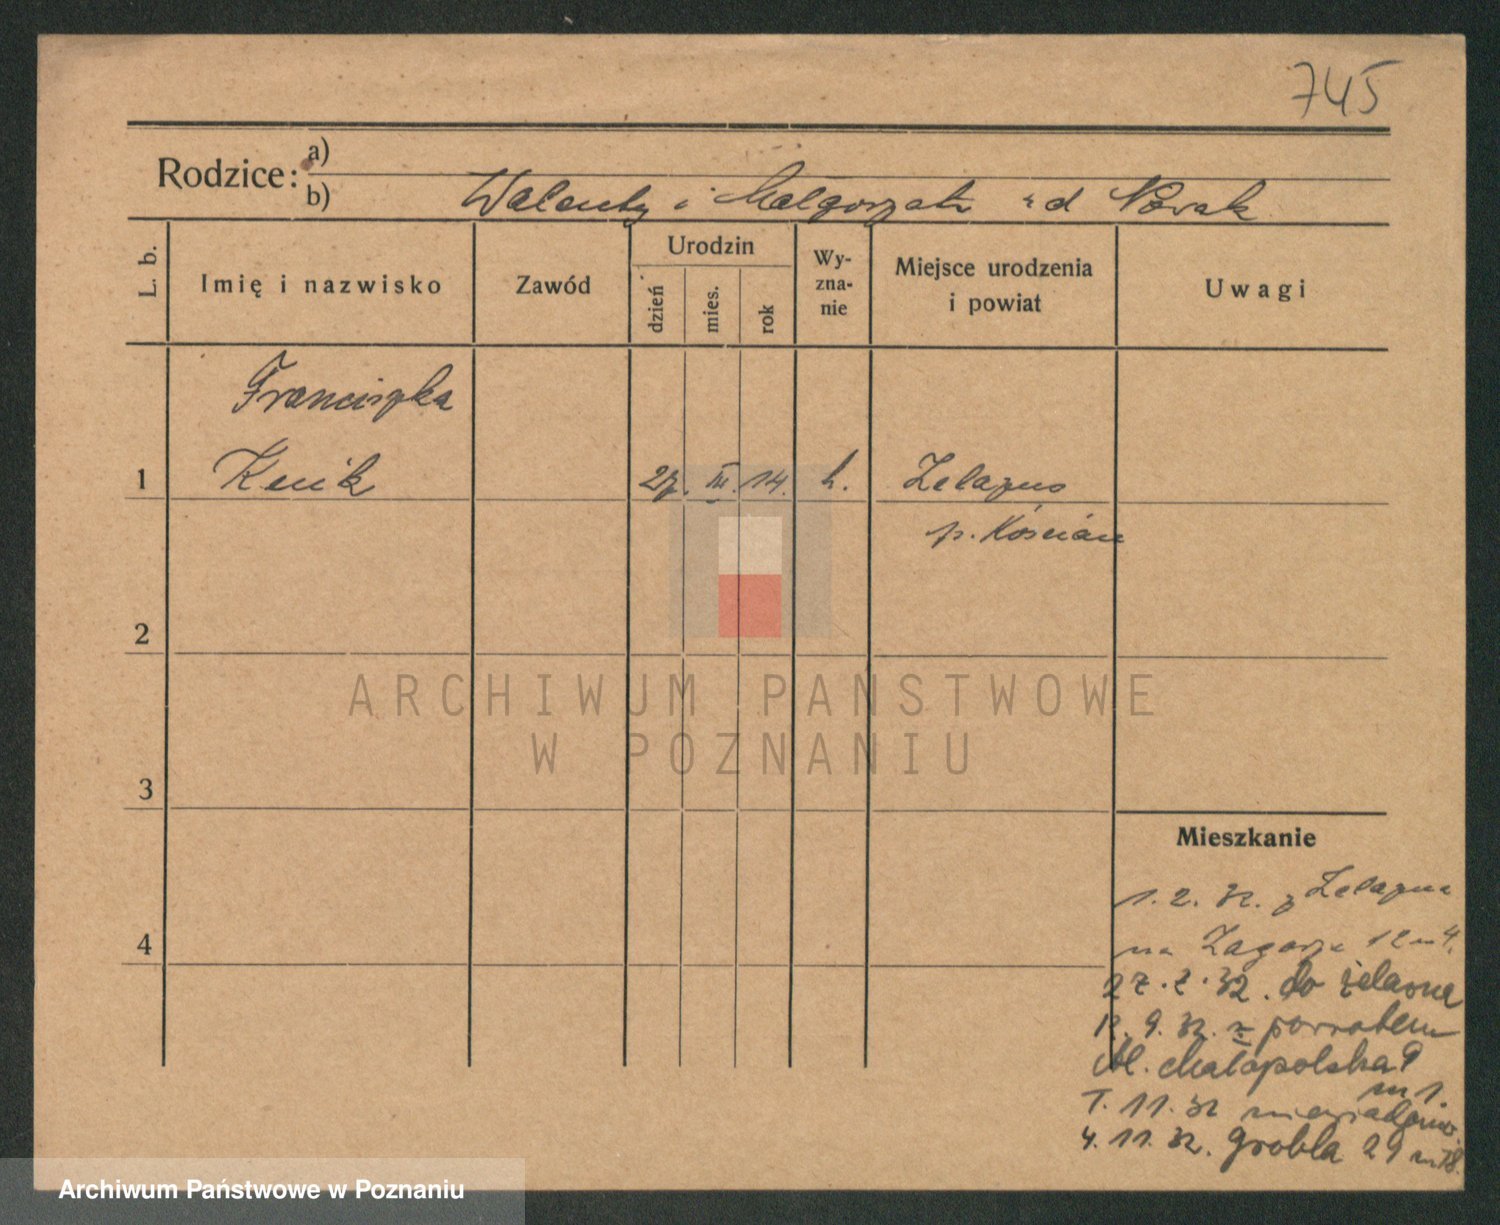 745
Rodzice: a)
b) Walenty i Małgorzata zd Nowak
L. b.
Imię i nazwisko
Zawód
Urodzin
dzień
mies.
rok
Wy-
zna-
nie
Miejsce urodzenia
i powiat
Uwagi
Franciszka
1 Kenik 27. III. 14. k. Żelazno
p. Kościan
2
3
4
Mieszkanie
1. 2. 32. z Żelazna
na Zagorze 12 m 4.
27. 2. 32. do żelazna
9. 32. z powrotem
Al. Małopolska 9
m 1.
11. 32 niewiadomo.
4. 11. 32. Grobla 29 m
ARCHIWUM PAŃSTWOWE
W POZNANIU
Archiwum Państwowe w Poznaniu